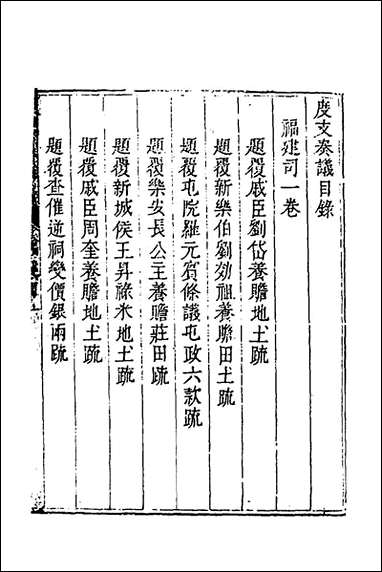 度支奏議目錄
福建司一卷
題覆戚臣劉岱養贍地土疏
題覆新樂伯劉効祖養贍田土疏
題覆屯院羅元賓條議屯政六款疏
題覆樂安長公主養贍莊田疏
題覆新城侯王昇祿米地土疏
題覆戚臣周奎養贍地土疏
題覆查催逆祠變價銀兩疏